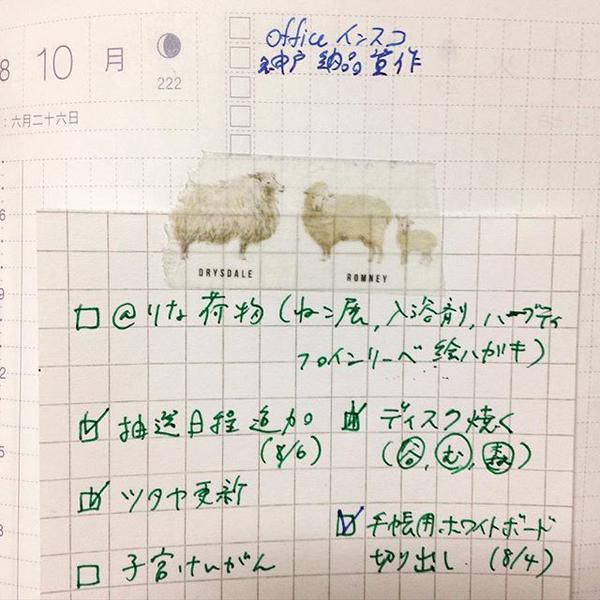 8 10 月
222
：六月二十六日
Office インスコ
神戸 納品書作
DRYSDALE ROMNEY
@りな荷物（ねこ展，入浴剤，ハーブティ
フロインリーベ 絵ハガキ）
抽送日程追加 ディスク焼く
（8/6） （谷，む，森）
ツタヤ更新 手帳用ホワイトボード
切り出し．（8/4）
子宮けいがん